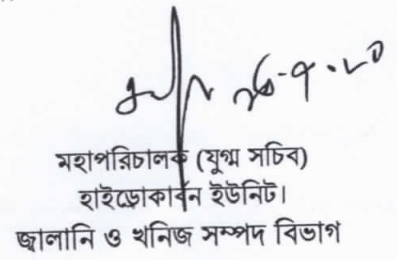 মহাপরিচালক (যুগ্ম সচিব)
হাইড্রোকার্বন ইউনিট।
জ্বালানি ও খনিজ সম্পদ বিভাগ